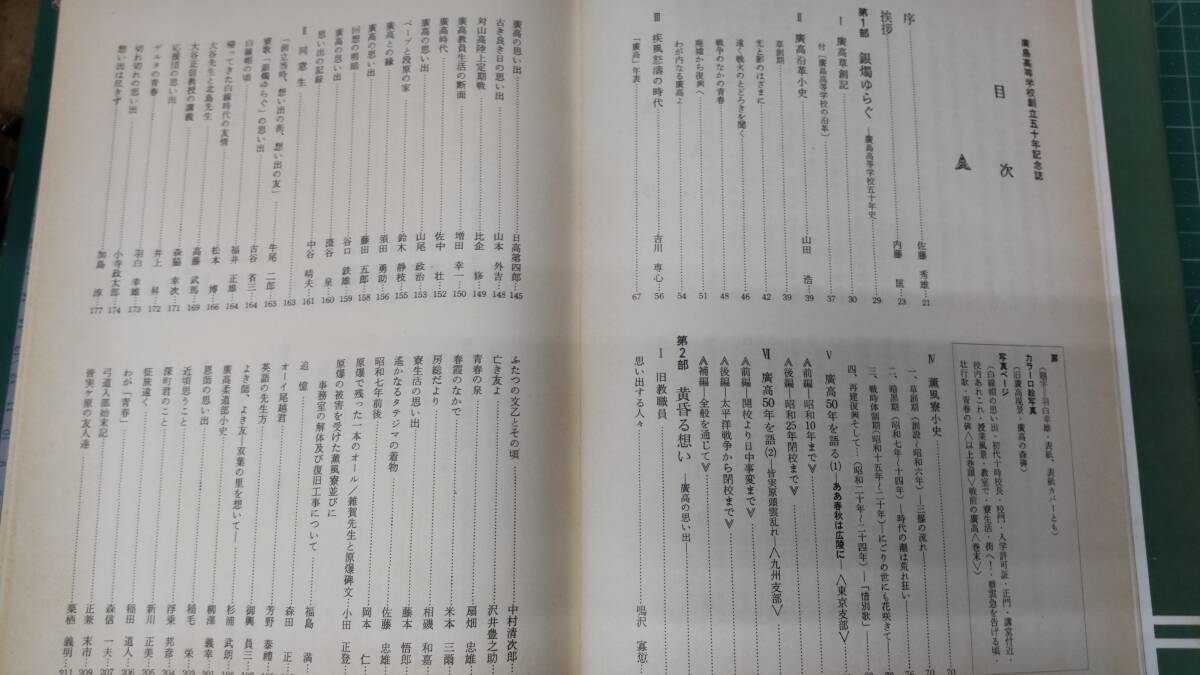 廣島高等学校創立五十年記念誌
目次
序 佐藤 秀雄…21
挨拶 内藤 匡…23
第1部 銀燭ゆらぐ ―廣島高等学校五十年史 29
Ⅰ 廣高草創記 30
付「廣島高等学校の沿革」 37
Ⅱ 廣高沿革小史 山田 浩…39
草創期 39
光と影のはざまに 42
遠く戦火のとどろきを聞く 46
戦争のなかの青春 48
廃墟から復興へ 51
わが内なる廣高よ 54
Ⅲ 疾風怒濤の時代 吉川 専心…56
「廣高」年表 67
扉 (題字―羽白幸雄・表紙、表紙カバーとも)
カラー口絵写真
(旧廣高風景・廣高の森碑)
写真ページ
(白線帽の思い出・初代十時校長・校門・入学許可証・正門・講堂付近・
校内あれこれ・授業風景・教室で・寮生活・街へ!・戦雲急を告げる頃・
壮行歌・青春の碑〈以上巻頭〉戦前の廣高〈巻末〉)
Ⅳ 薫風寮小史 70
一、草創期(創設~昭和六年)―三篠の流れ 70
二、暗黒期(昭和七年~十四年)―時代の潮は荒れ狂い 76
三、戦時体制期(昭和十五年~二十年)―にごりの世にも花咲きて
四、再建復興そして…(昭和二十年~二十四年)―「惜別歌」
Ⅴ 廣高50年を語る(1) ああ春秋は広陵に―〈東京支部〉
≪前編―昭和10年まで≫
≪後編―昭和25年閉校まで≫
Ⅵ 廣高50年を語る(2) 皆実原頭雲乱れ―〈九州支部〉
≪前編―開校より日中事変まで≫
≪後編―太平洋戦争から閉校まで≫
≪補編―全般を通じて≫
第2部 黄昏る想い ―廣高の思い出―
Ⅰ 旧教職員
思い出する人々 鳴沢 寡愆
廣高の思い出 日高第四郎…145
古き良き日の思い出 山本 外吉…148
対山高陸上定期戦 比企 修…149
廣高教員生活の断面 増田 幸一…150
廣高時代 佐中 壮…152
廣高の思い出 山尾 政治…153
ペーブと段原の家 鈴木 静枝…155
廣高との縁 須田 勇助…156
廣高の思い出 藤田 五郎…158
回想の明暗 谷口 鉄雄…159
廣高の思い出 澹谷 泉…160
思い出の記録 中谷 晴夫…161
Ⅱ 同窓生 163
「創立当時、想い出の街、想い出の友」 牛尾 二郎…163
寮歌「銀燭ゆらぐ」の思い出 古谷 省三…164
白線帽の頃 福井 正雄…164
帰ってきた白線時代の友情 松本 博…166
大谷先生と北島先生 高藤 武馬…169
大谷正信教授の講義 森脇 幸次…171
応援団の思い出 井上 昇…172
ゲルタの青春 羽白 幸雄…173
切れ切れの思い出 小寺政太郎…174
想い出は尽きず 加島 淳…177
ふたつの文乙とその頃 中村清次郎…
亡き友よ 沢井豊之助…
青春の泉 扇畑 忠雄…
春霞のなかで 米本 三爾…
房総だより 相磯 和嘉…
寮生活の思い出 藤本 悟郎…
遙かなるタテジマの着物 佐藤 忠雄…
昭和七年前後 岡本 仁…
原爆で残った一本のオール/雑賀先生と原爆碑文 小田 正登…
原爆の被害を受けた薫風寮並びに
事務室の解体及び復旧工事について
追憶 福島 満…
オーイ尾越君 森田 正…
英語の先生方 芳野 泰禮
よき師、よき友―双葉の里を想いて― 御興 員三
廣高柔道部小史 杉浦 武朗
恩師の思い出 柳澤 義幸
近頃思うこと 稲毛 栄…203
深町君のこと 浮乗 邦彦…204
征旅遠く 新川 正美…205
わが「青春」 稲田 道人…206
弓道人部始末記 森信 一夫…207
皆実ヶ原の友人達 正兼 末市…209
棗栖 義明…211